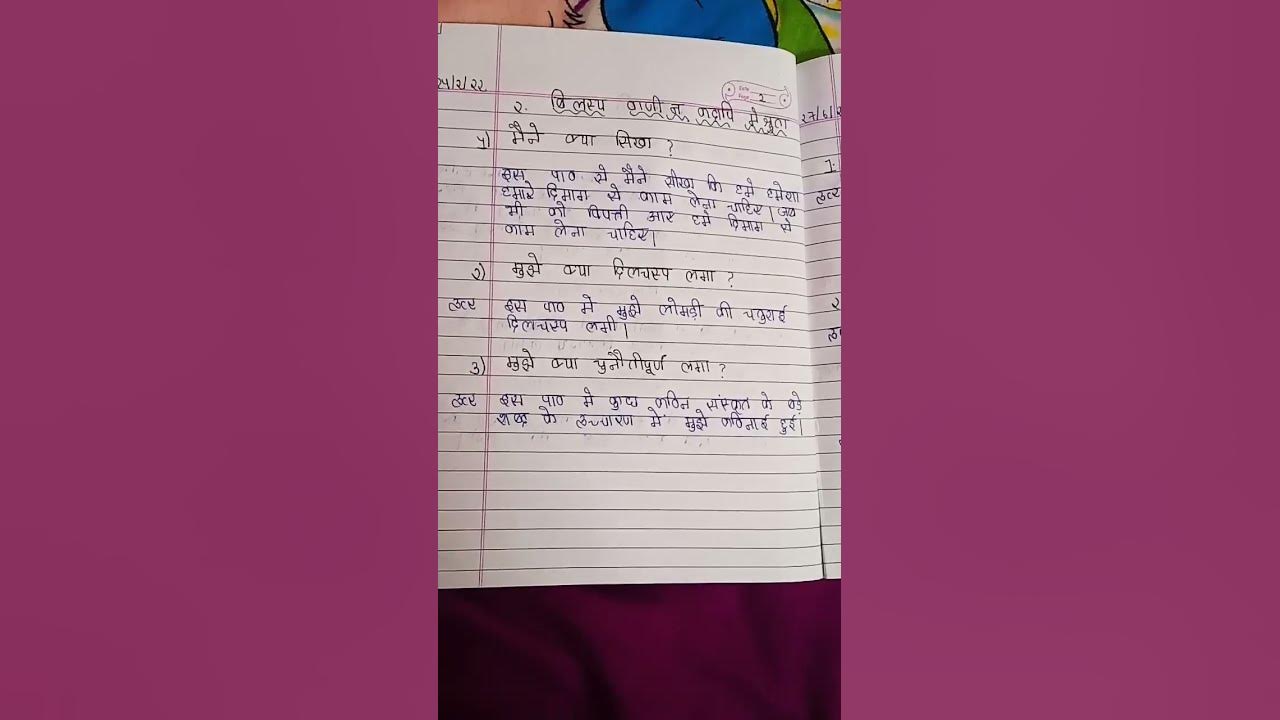 २५/२/२२
Date
Page 2
२. बिलस्प वाणी न कदापि मे श्रुता
२७/६/२
१) मैने क्या सिखा ?
1.
इस पाठ से मैने सीखा कि हमे हमेशा
हमारे दिमाग से काम लेना चाहिए। जब
उत्तर
भी को विपत्ती आए हमे दिमाग से
काम लेना चाहिए।
२) मुझे क्या दिलचस्प लगा ?
उत्तर इस पाठ मे मुझे लोमड़ी की चतुराई
२
दिलचस्प लगी।
३) मुझे क्या चुनौतीपूर्ण लगा ?
उत्तर इस पाठ मे कुछ कठिन संस्कृत के बड़े
शब्द के उच्चारण मे मुझे कठिनाई हुई।